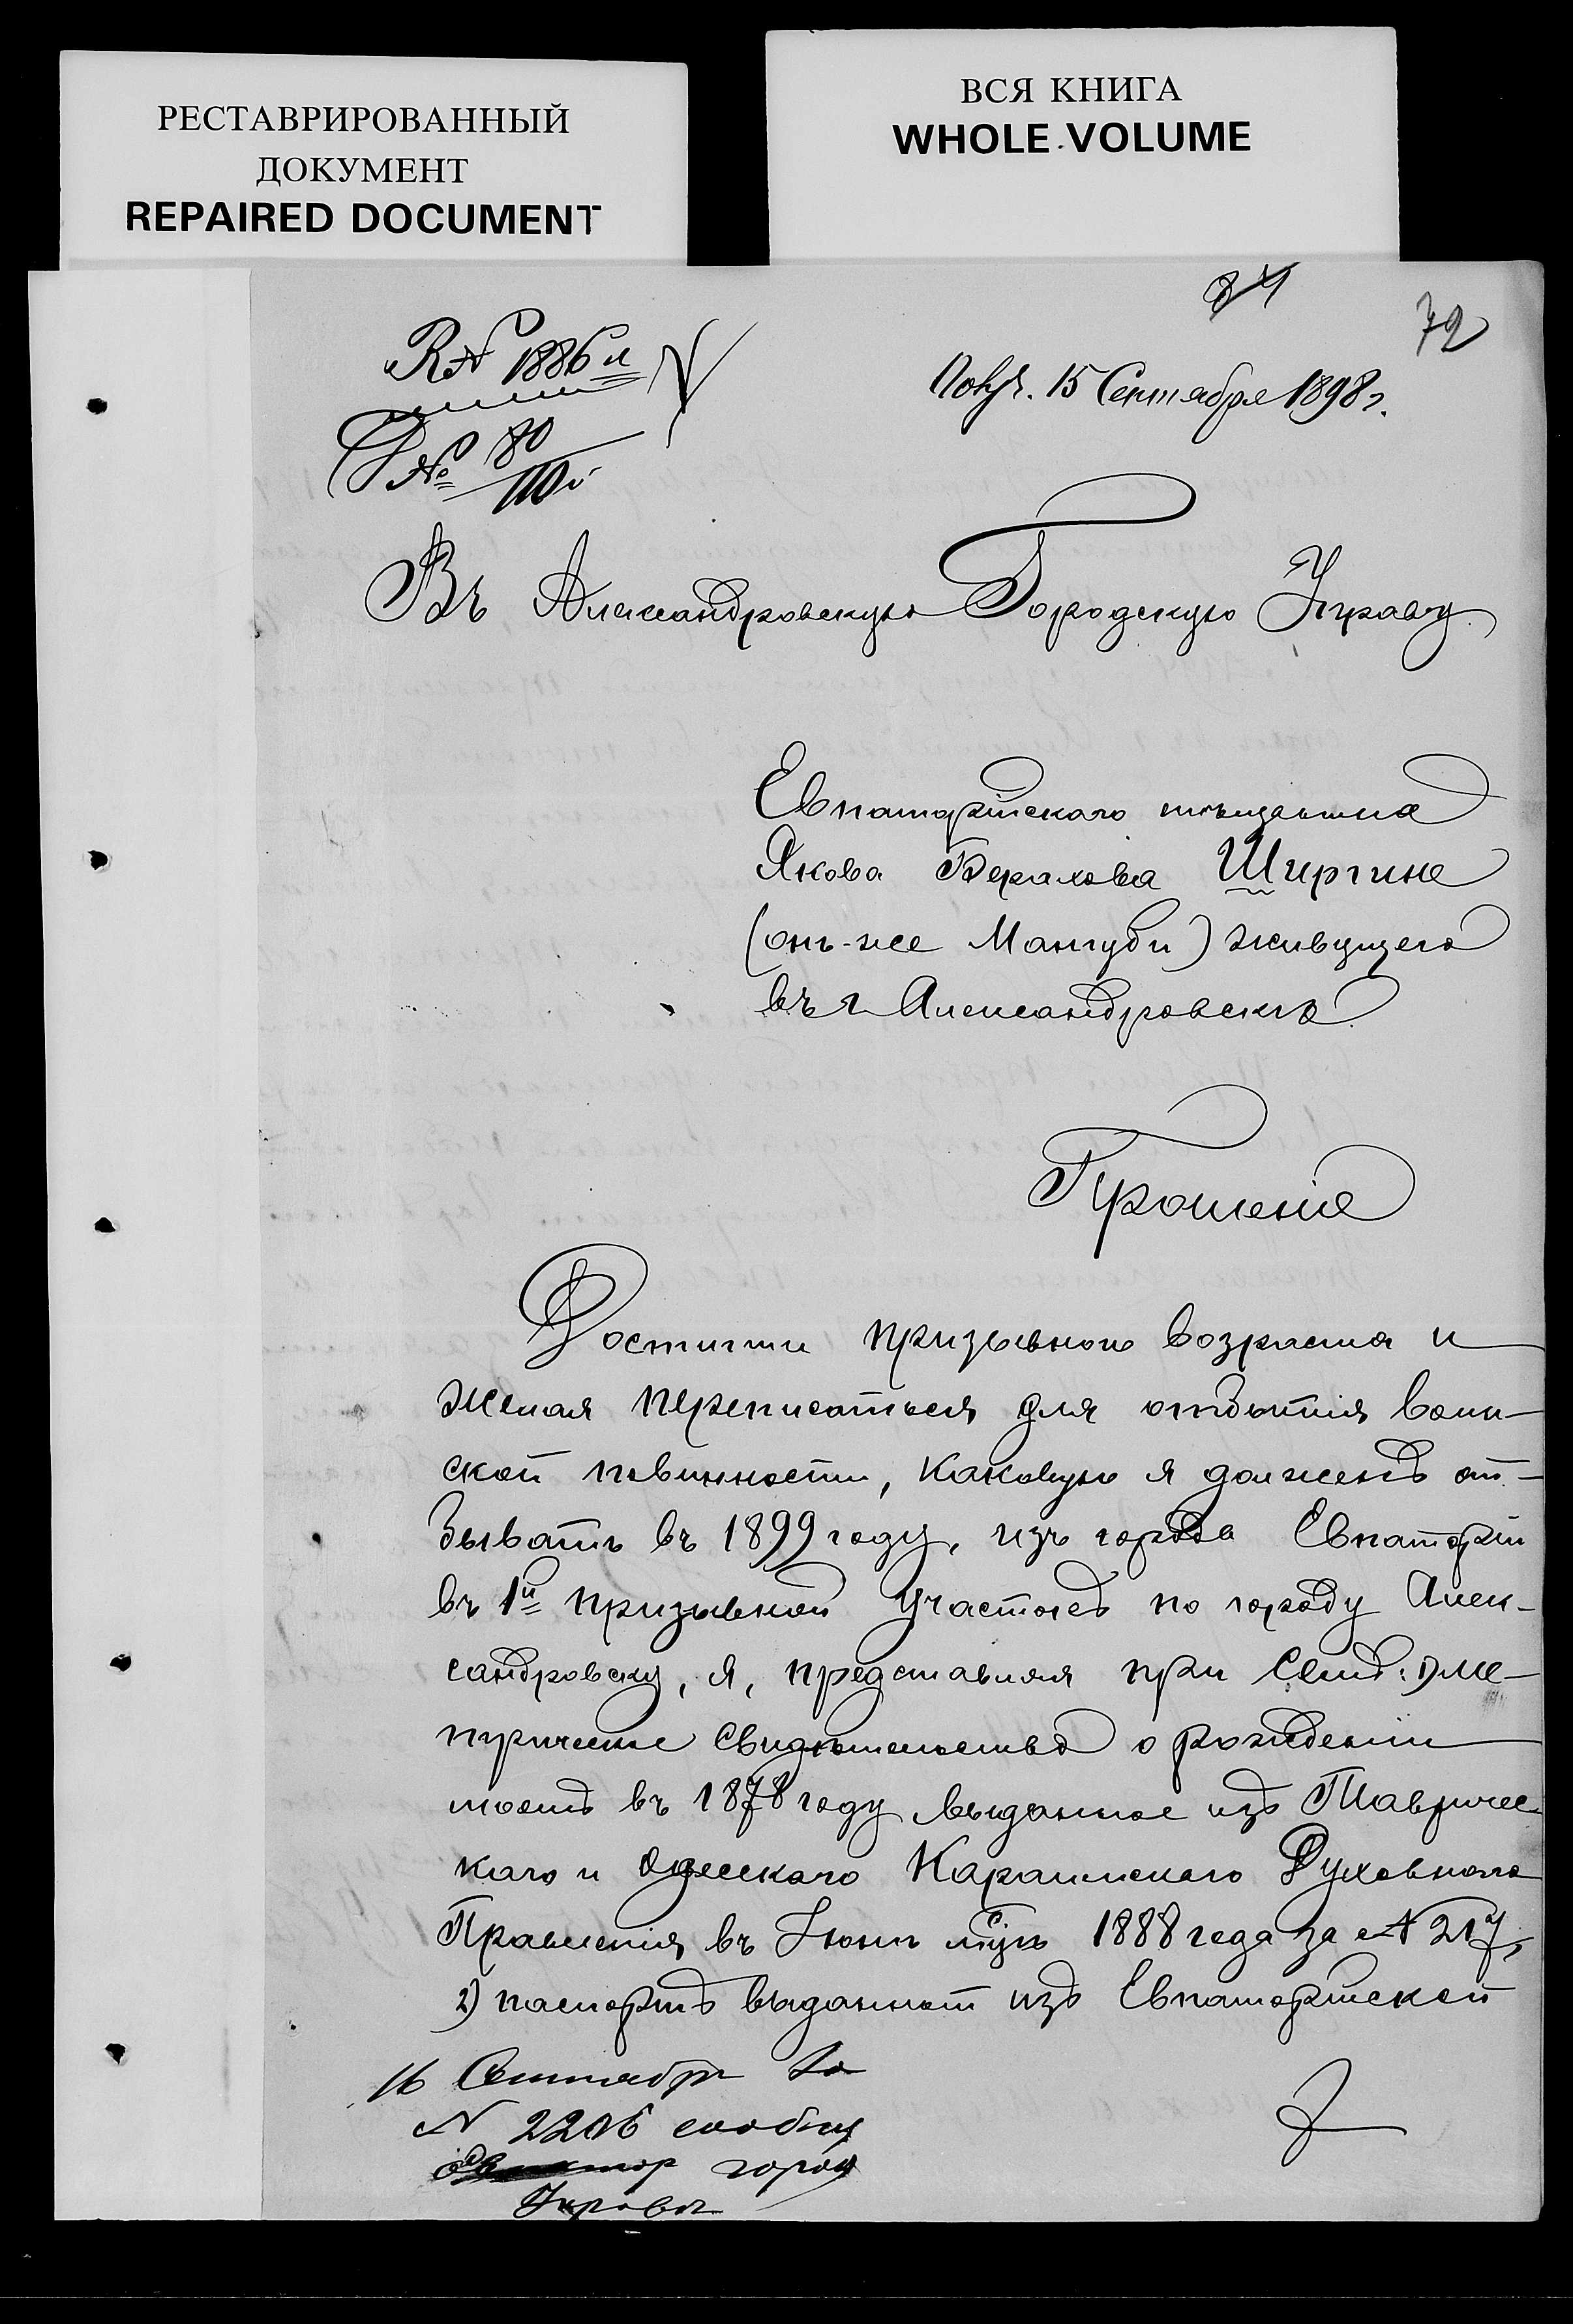 РЕСТАВРИРОВАННЫЙ
ДОКУМЕНТ
REPAIRED DOCUMENT
ВСЯ КНИГА
WHOLE VOLUME
72
№ 1886
Получ. 15 Сентября 1898 г.
№ 80/110
Въ Александровскую Городскую Управу
Евпаторійскаго мѣщанина
Якова Берахова Ширгине
(онъ-же Мангуби) живущего
въ г. Александровскѣ
Прошеніе
Достигши призывного возраста и
желая переписаться для отбытія воин-
ской повинности, каковую я долженъ от-
бывать въ 1899 году, изъ города Евпаторіи
въ 1й призывной участокъ по городу Алек-
сандровску, я, представляя при семъ: 1) ме-
трическое свидѣтельство о рожденіи
моемъ въ 1878 году выданное изъ Тавричес-
каго и Одесскаго Караимскаго Духовнаго
Правленія въ Іюнѣ мѣсяцѣ 1888 года за № 217,
2) паспортъ выданный изъ Евпаторійской
16 Сентября за
№ 2206 сообщ
город
Управы